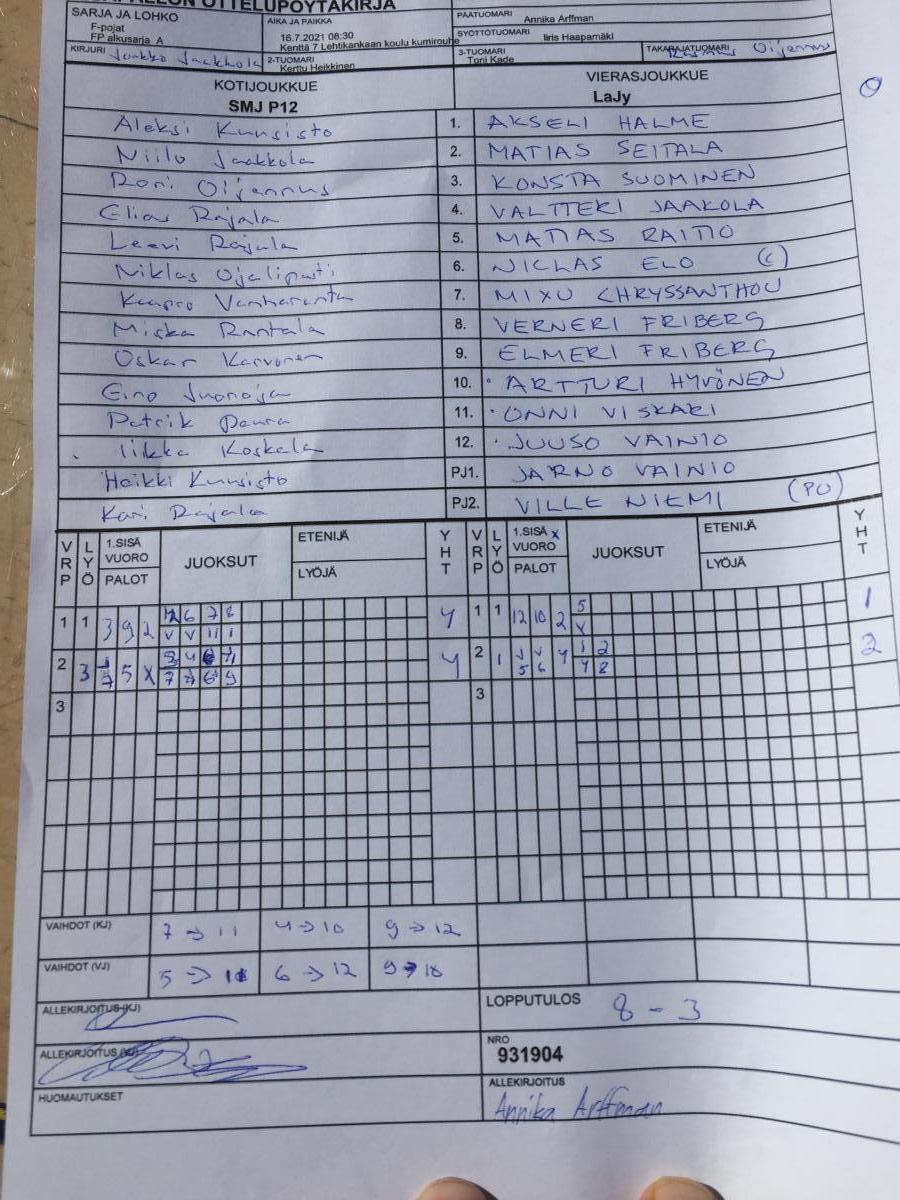 OTTELUPÖYTÄKIRJA
SARJA JA LOHKO
F-pojat
FP alkusarja A
AIKA JA PAIKKA
16.7.2021 08:30
Kenttä 7 Lehtikankaan koulu kumirouhe
PÄÄTUOMARI Annika Arffman
SYÖTTÖTUOMARI Iiris Haapamäki
KIRJURI Jaakko Jaakkola
2-TUOMARI
Kerttu Heikkinen
3-TUOMARI
Toni Kade
TAKARAJATUOMARI Oijennus
KOTIJOUKKUE
SMJ P12
VIERASJOUKKUE
LaJy
Aleksi Kuusisto 1. AKSELI HALME
Niilo Jaakkola 2. MATIAS SEITALA
Roni Oijennus 3. KONSTA SUOMINEN
Elias Rajala 4. VALTTERI JAAKOLA
Leevi Rajala 5. MATIAS RAITIO
Niklas Ojalipasti 6. NICLAS ELO (C)
Kaapro Vanharanta 7. MIXU CHRYSSANTHOU
Miska Rantala 8. VERNERI FRIBERG
Oskar Karvonen 9. ELMERI FRIBERG
Eino Juonoja 10. ARTTURI HYVÖNEN
Patrik Peura 11. ONNI VISKARI
Iikka Koskela 12. JUUSO VAINIO
Heikki Kuusisto PJ1. JARNO VAINIO
Kari Rajala PJ2. VILLE NIEMI (PU)
VRP LYÖ 1.SISÄ VUORO PALOT JUOKSUT ETENIJÄ LYÖJÄ YHT VRP LYÖ 1.SISÄ x VUORO PALOT JUOKSUT ETENIJÄ LYÖJÄ YHT
1 1 3 9 2 6 7 8 4 1 1 12 10 2 5 1
V V 11 1 V
2 3 5 X 4 2 1 4 1 2 2
5 6 4 2
3 3
VAIHDOT (KJ) 7 → 11 4 → 10 9 → 12
VAIHDOT (VJ) 5 → 6 → 12 9 → 10
ALLEKIRJOITUS (KJ)
LOPPUTULOS 8 - 3
ALLEKIRJOITUS (VJ)
NRO
931904
HUOMAUTUKSET
ALLEKIRJOITUS
Annika Arffman